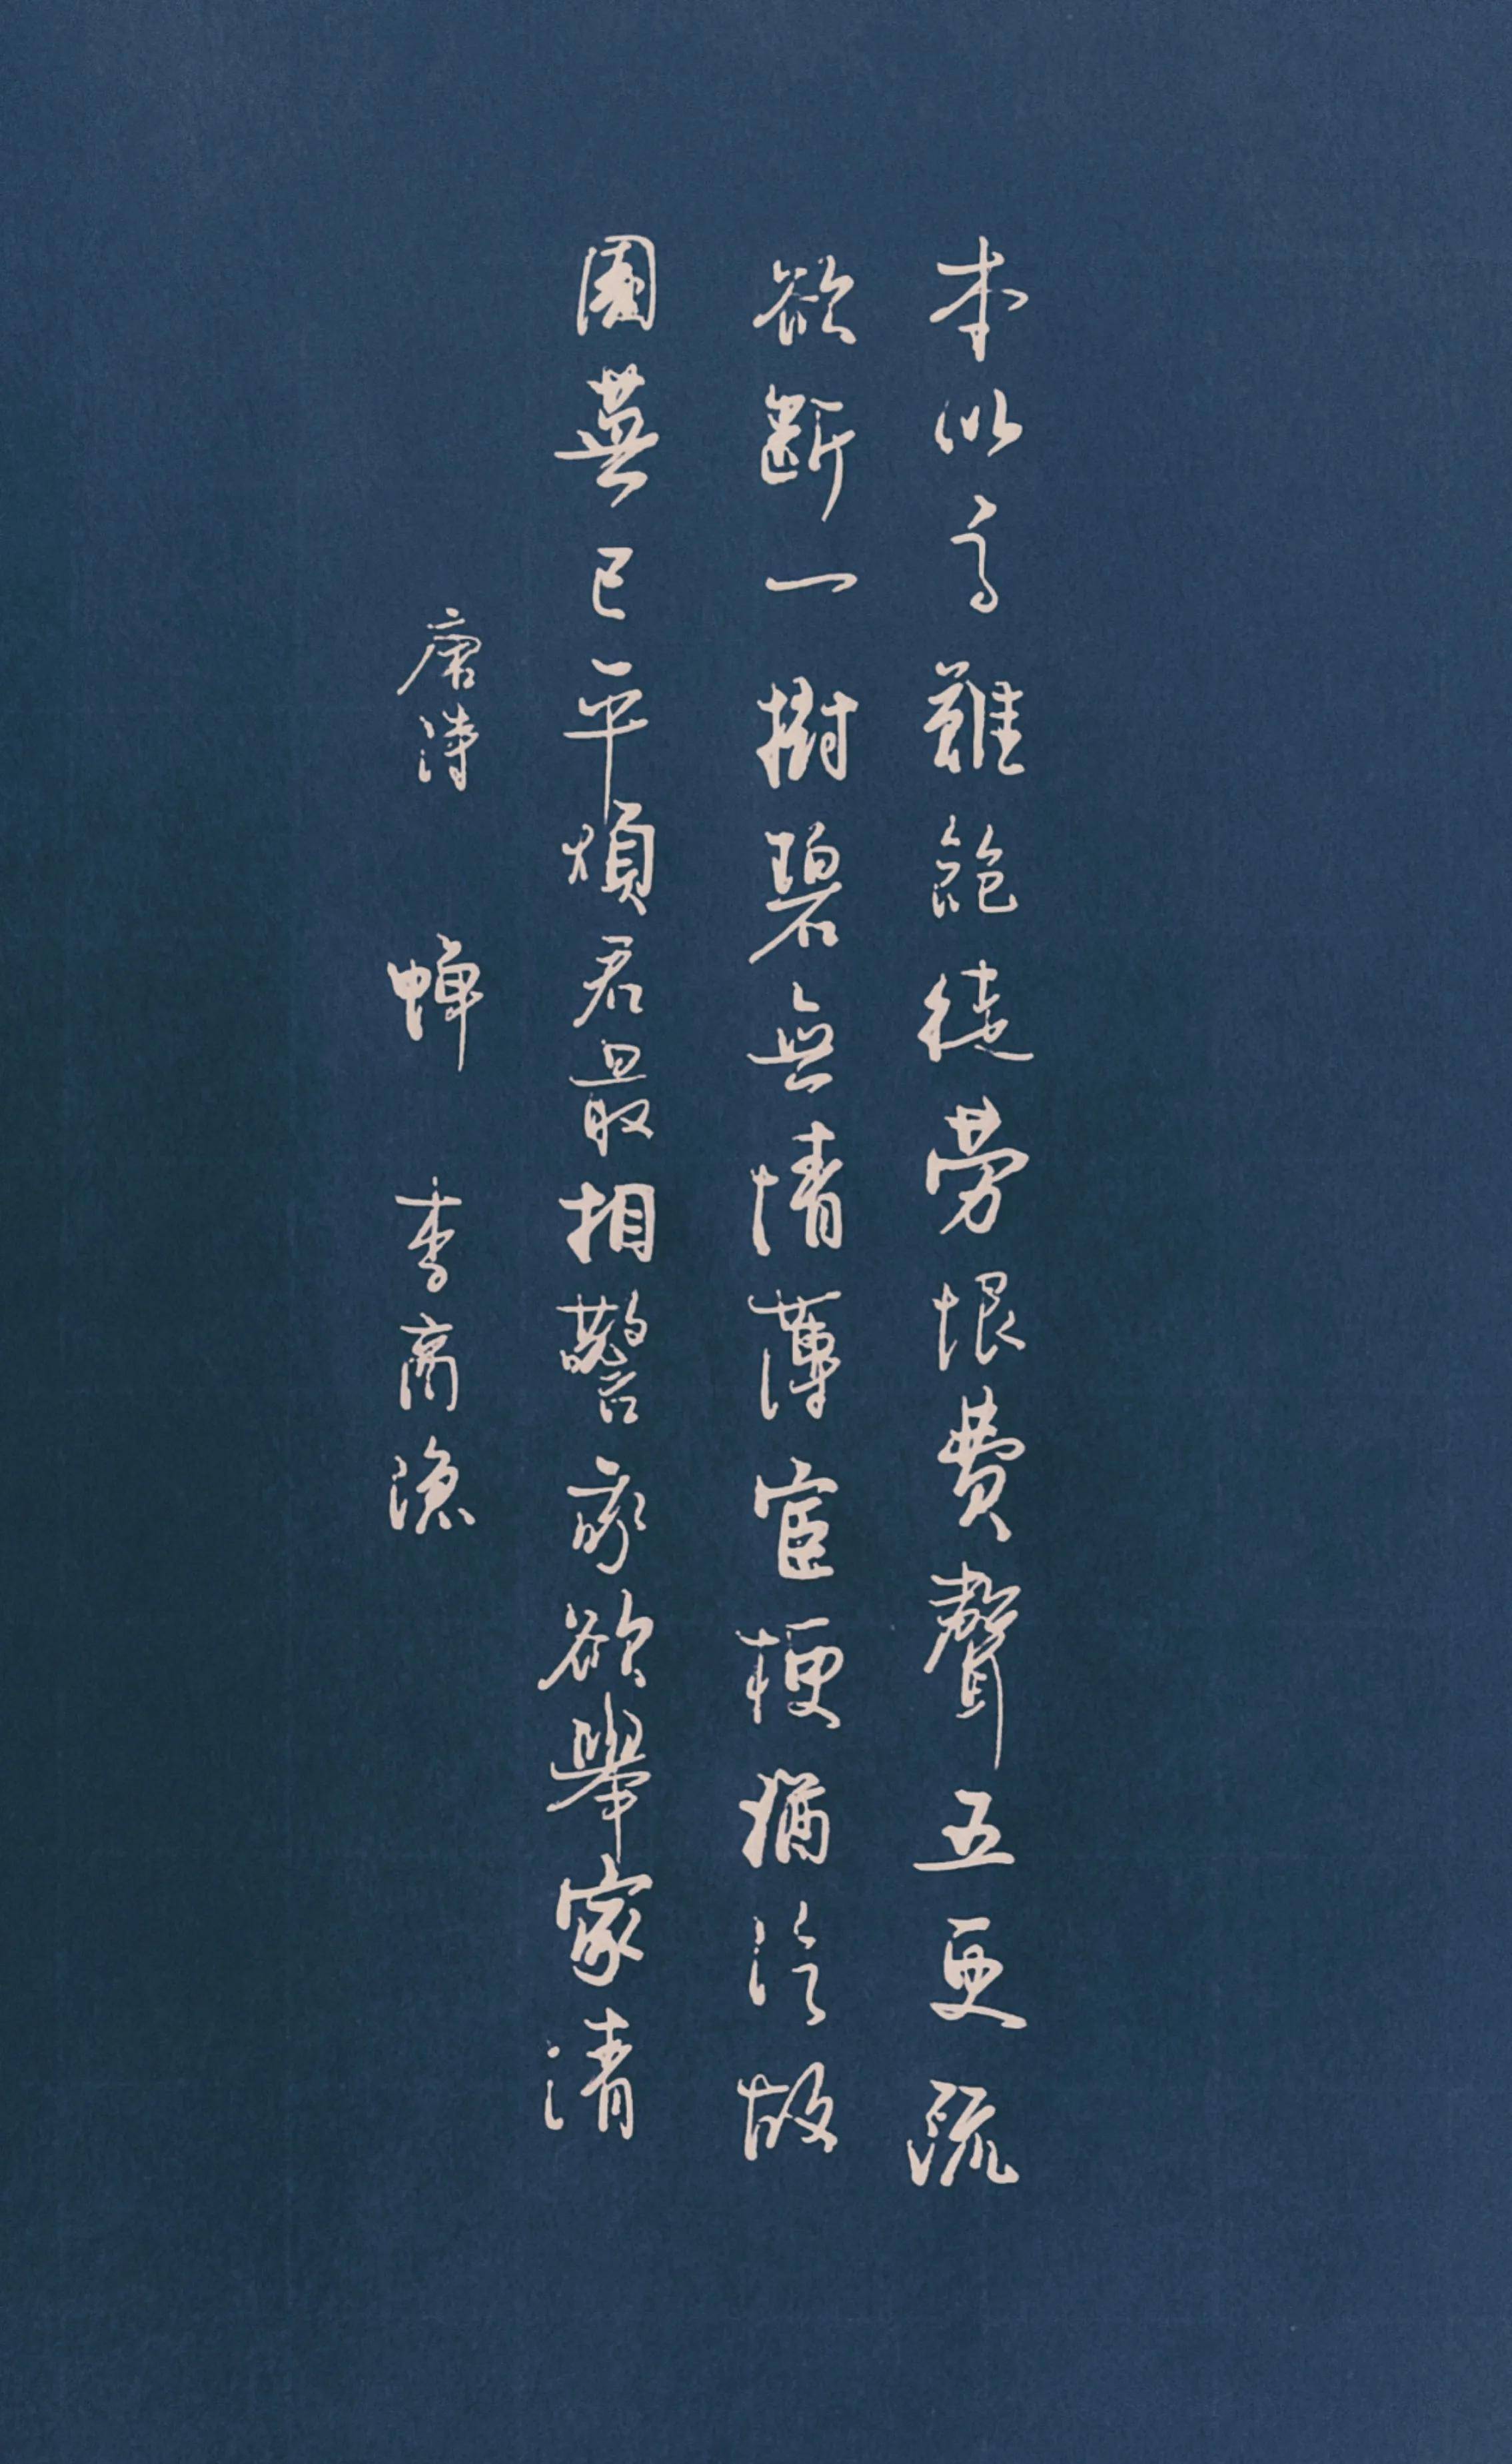 本以高難飽徒勞恨費聲五更疏
欲斷一樹碧無情薄宦梗猶汎故
園蕪已平煩君最相警我欲舉家清
唐詩 蟬 李商隱